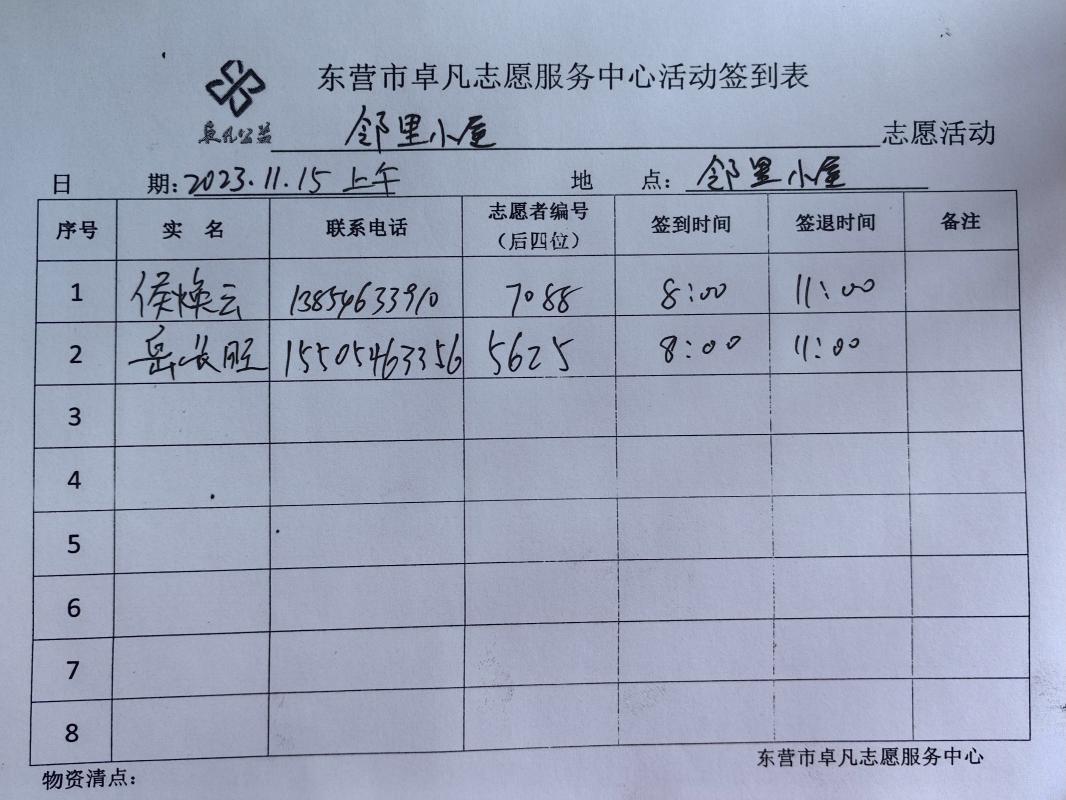 东营市卓凡志愿服务中心活动签到表
卓凡公益 邻里小屋 志愿活动
日 期：2023.11.15 上午 地 点：邻里小屋
序号 实 名 联系电话 志愿者编号（后四位） 签到时间 签退时间 备注
1 侯焕云 13854633910 7088 8:00 11:00
2 岳长旺 15505463356 5625 8:00 11:00
3
4
5
6
7
8
东营市卓凡志愿服务中心
物资清点：